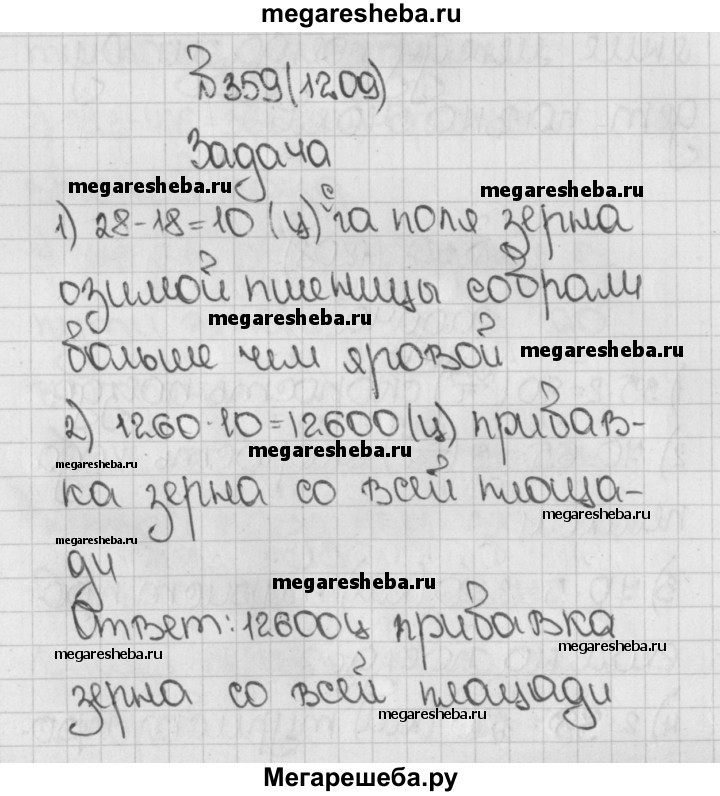 megaresheba.ru
№359(1209)
Задача
megaresheba.ru
megaresheba.ru
1) 28-18=10 (ц) с га поля зерна
озимой пшеницы собрали
megaresheba.ru
больше чем яровой
megaresheba.ru
2) 1260·10=12600(ц) прибав-
megaresheba.ru
megaresheba.ru
ка зерна со всей площа-
megaresheba.ru
megaresheba.ru
ди
megaresheba.ru
Ответ: 12600ц прибавка
megaresheba.ru
megaresheba.ru
зерна со всей площади
megaresheba.ru
Мегарешеба.ру